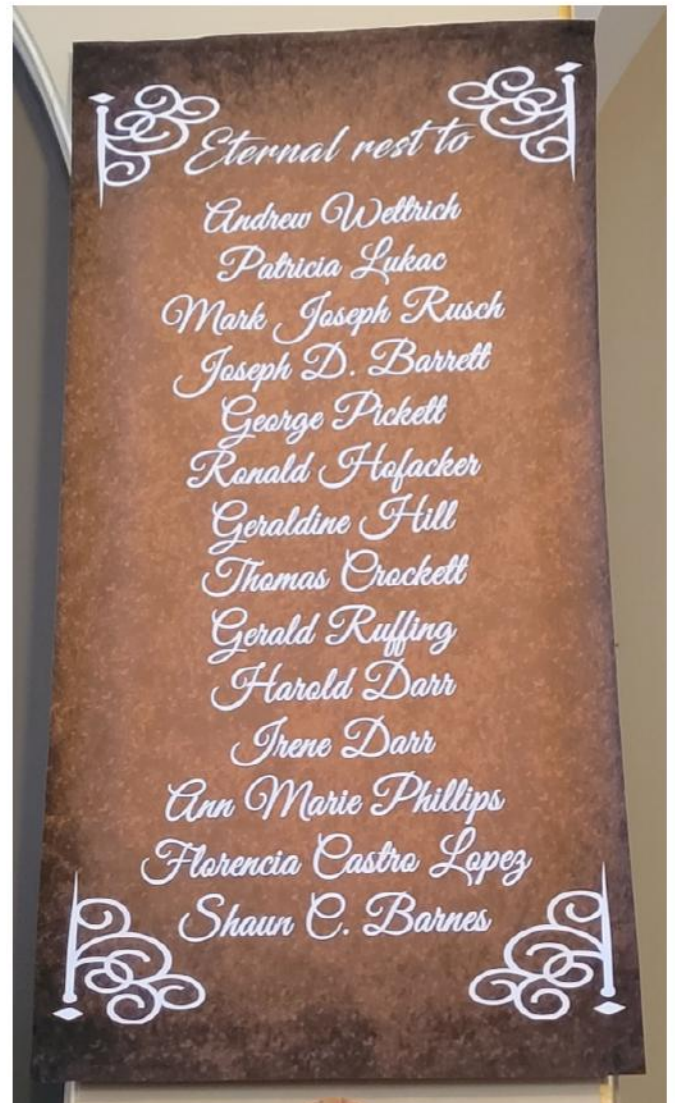 Eternal rest to
Andrew Wettrich
Patricia Lukac
Mark Joseph Rusch
Joseph D. Barrett
George Pickett
Ronald Hofacker
Geraldine Hill
Thomas Crockett
Gerald Ruffing
Harold Darr
Irene Darr
Ann Marie Phillips
Florencia Castro Lopez
Shaun C. Barnes